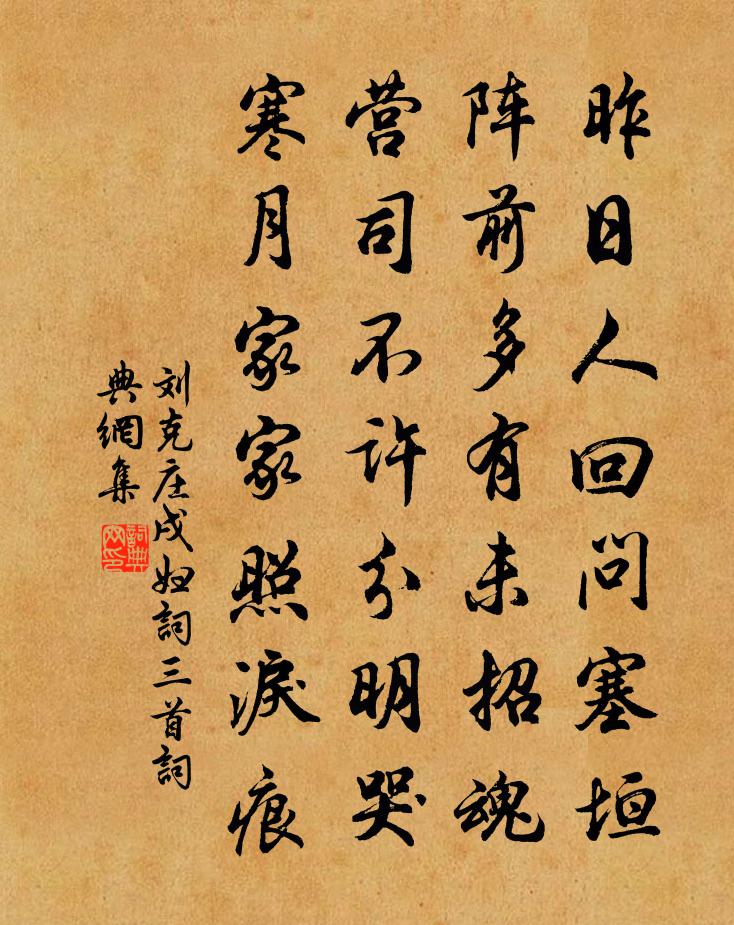 昨日人回问塞垣
阵前多有未招魂
营司不许分明哭
寒月家家照淚痕
刘克庄戍妇詞三首詞
典網集
詞典
网印